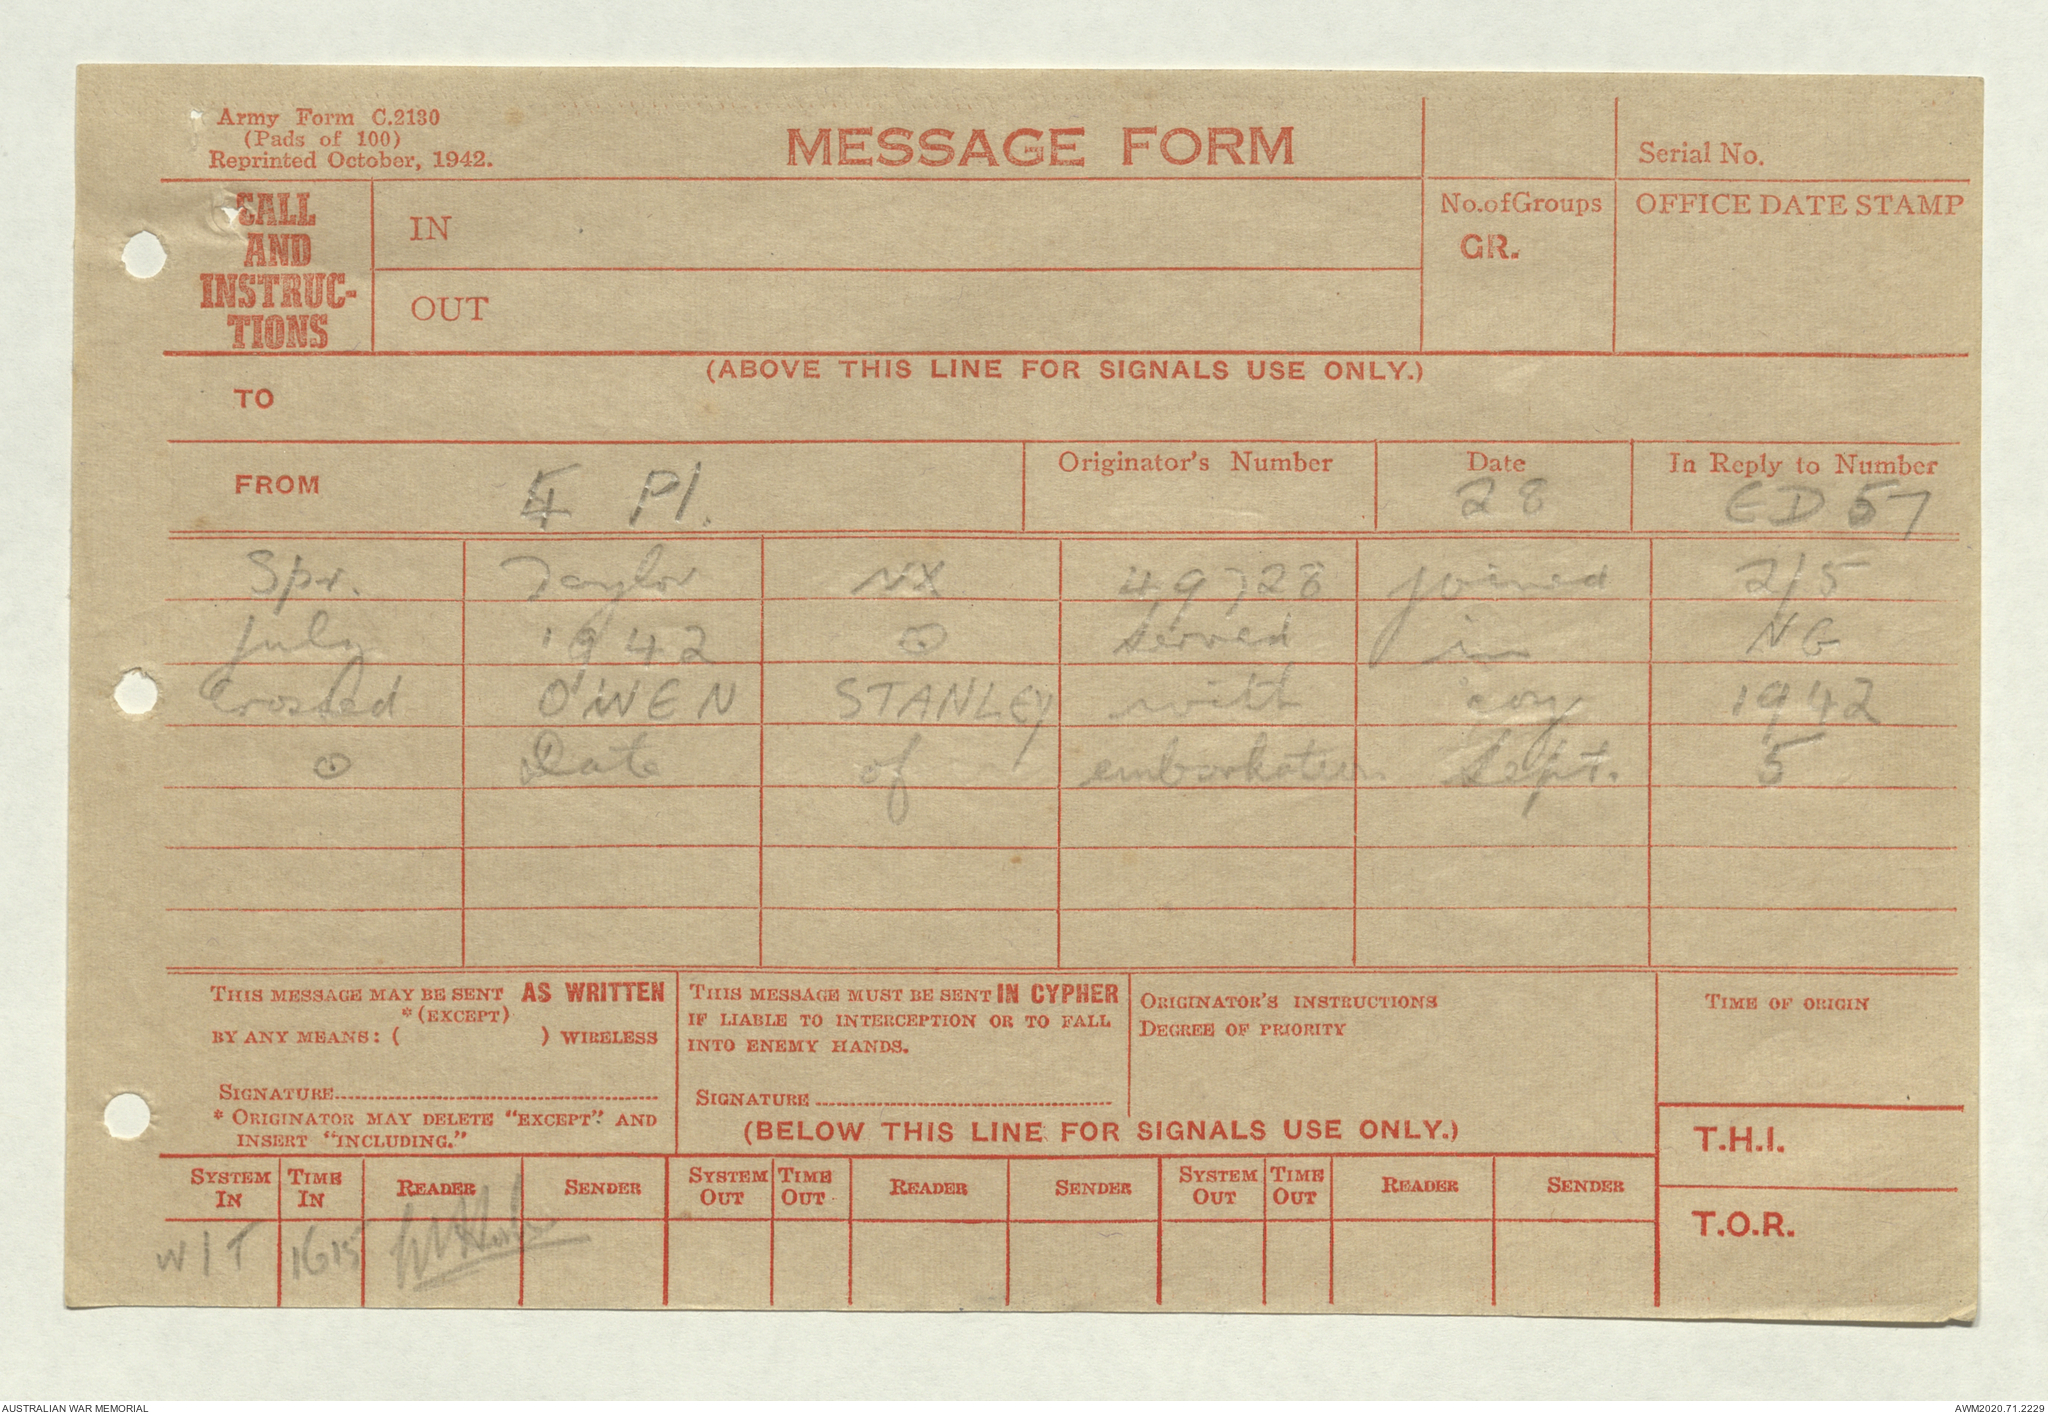 Army Form C.2130
(Pads of 100)
Reprinted October, 1942.
MESSAGE FORM
Serial No.
CALL
AND
INSTRUC-
TIONS
IN
OUT
No. of Groups
GR.
OFFICE DATE STAMP
(ABOVE THIS LINE FOR SIGNALS USE ONLY.)
TO
FROM 4 Pl.
Originator's Number
Date
28
In Reply to Number
ED 57
Spr. Taylor NX 49728 joined 2/5
July 1942 ⊙ served in NG
Crossed OWEN STANLEY with coy 1942
⊙ Date of embarkation Sept. 5
THIS MESSAGE MAY BE SENT AS WRITTEN
*(EXCEPT)
BY ANY MEANS: ( ) WIRELESS
SIGNATURE
* ORIGINATOR MAY DELETE "EXCEPT" AND
INSERT "INCLUDING."
THIS MESSAGE MUST BE SENT IN CYPHER
IF LIABLE TO INTERCEPTION OR TO FALL
INTO ENEMY HANDS.
SIGNATURE
ORIGINATOR'S INSTRUCTIONS
DEGREE OF PRIORITY
TIME OF ORIGIN
(BELOW THIS LINE FOR SIGNALS USE ONLY.)
T.H.I.
T.O.R.
SYSTEM IN
TIME IN
READER
SENDER
SYSTEM OUT
TIME OUT
READER
SENDER
SYSTEM OUT
TIME OUT
READER
SENDER
W/T 1615
AUSTRALIAN WAR MEMORIAL
AWM2020.71.2229